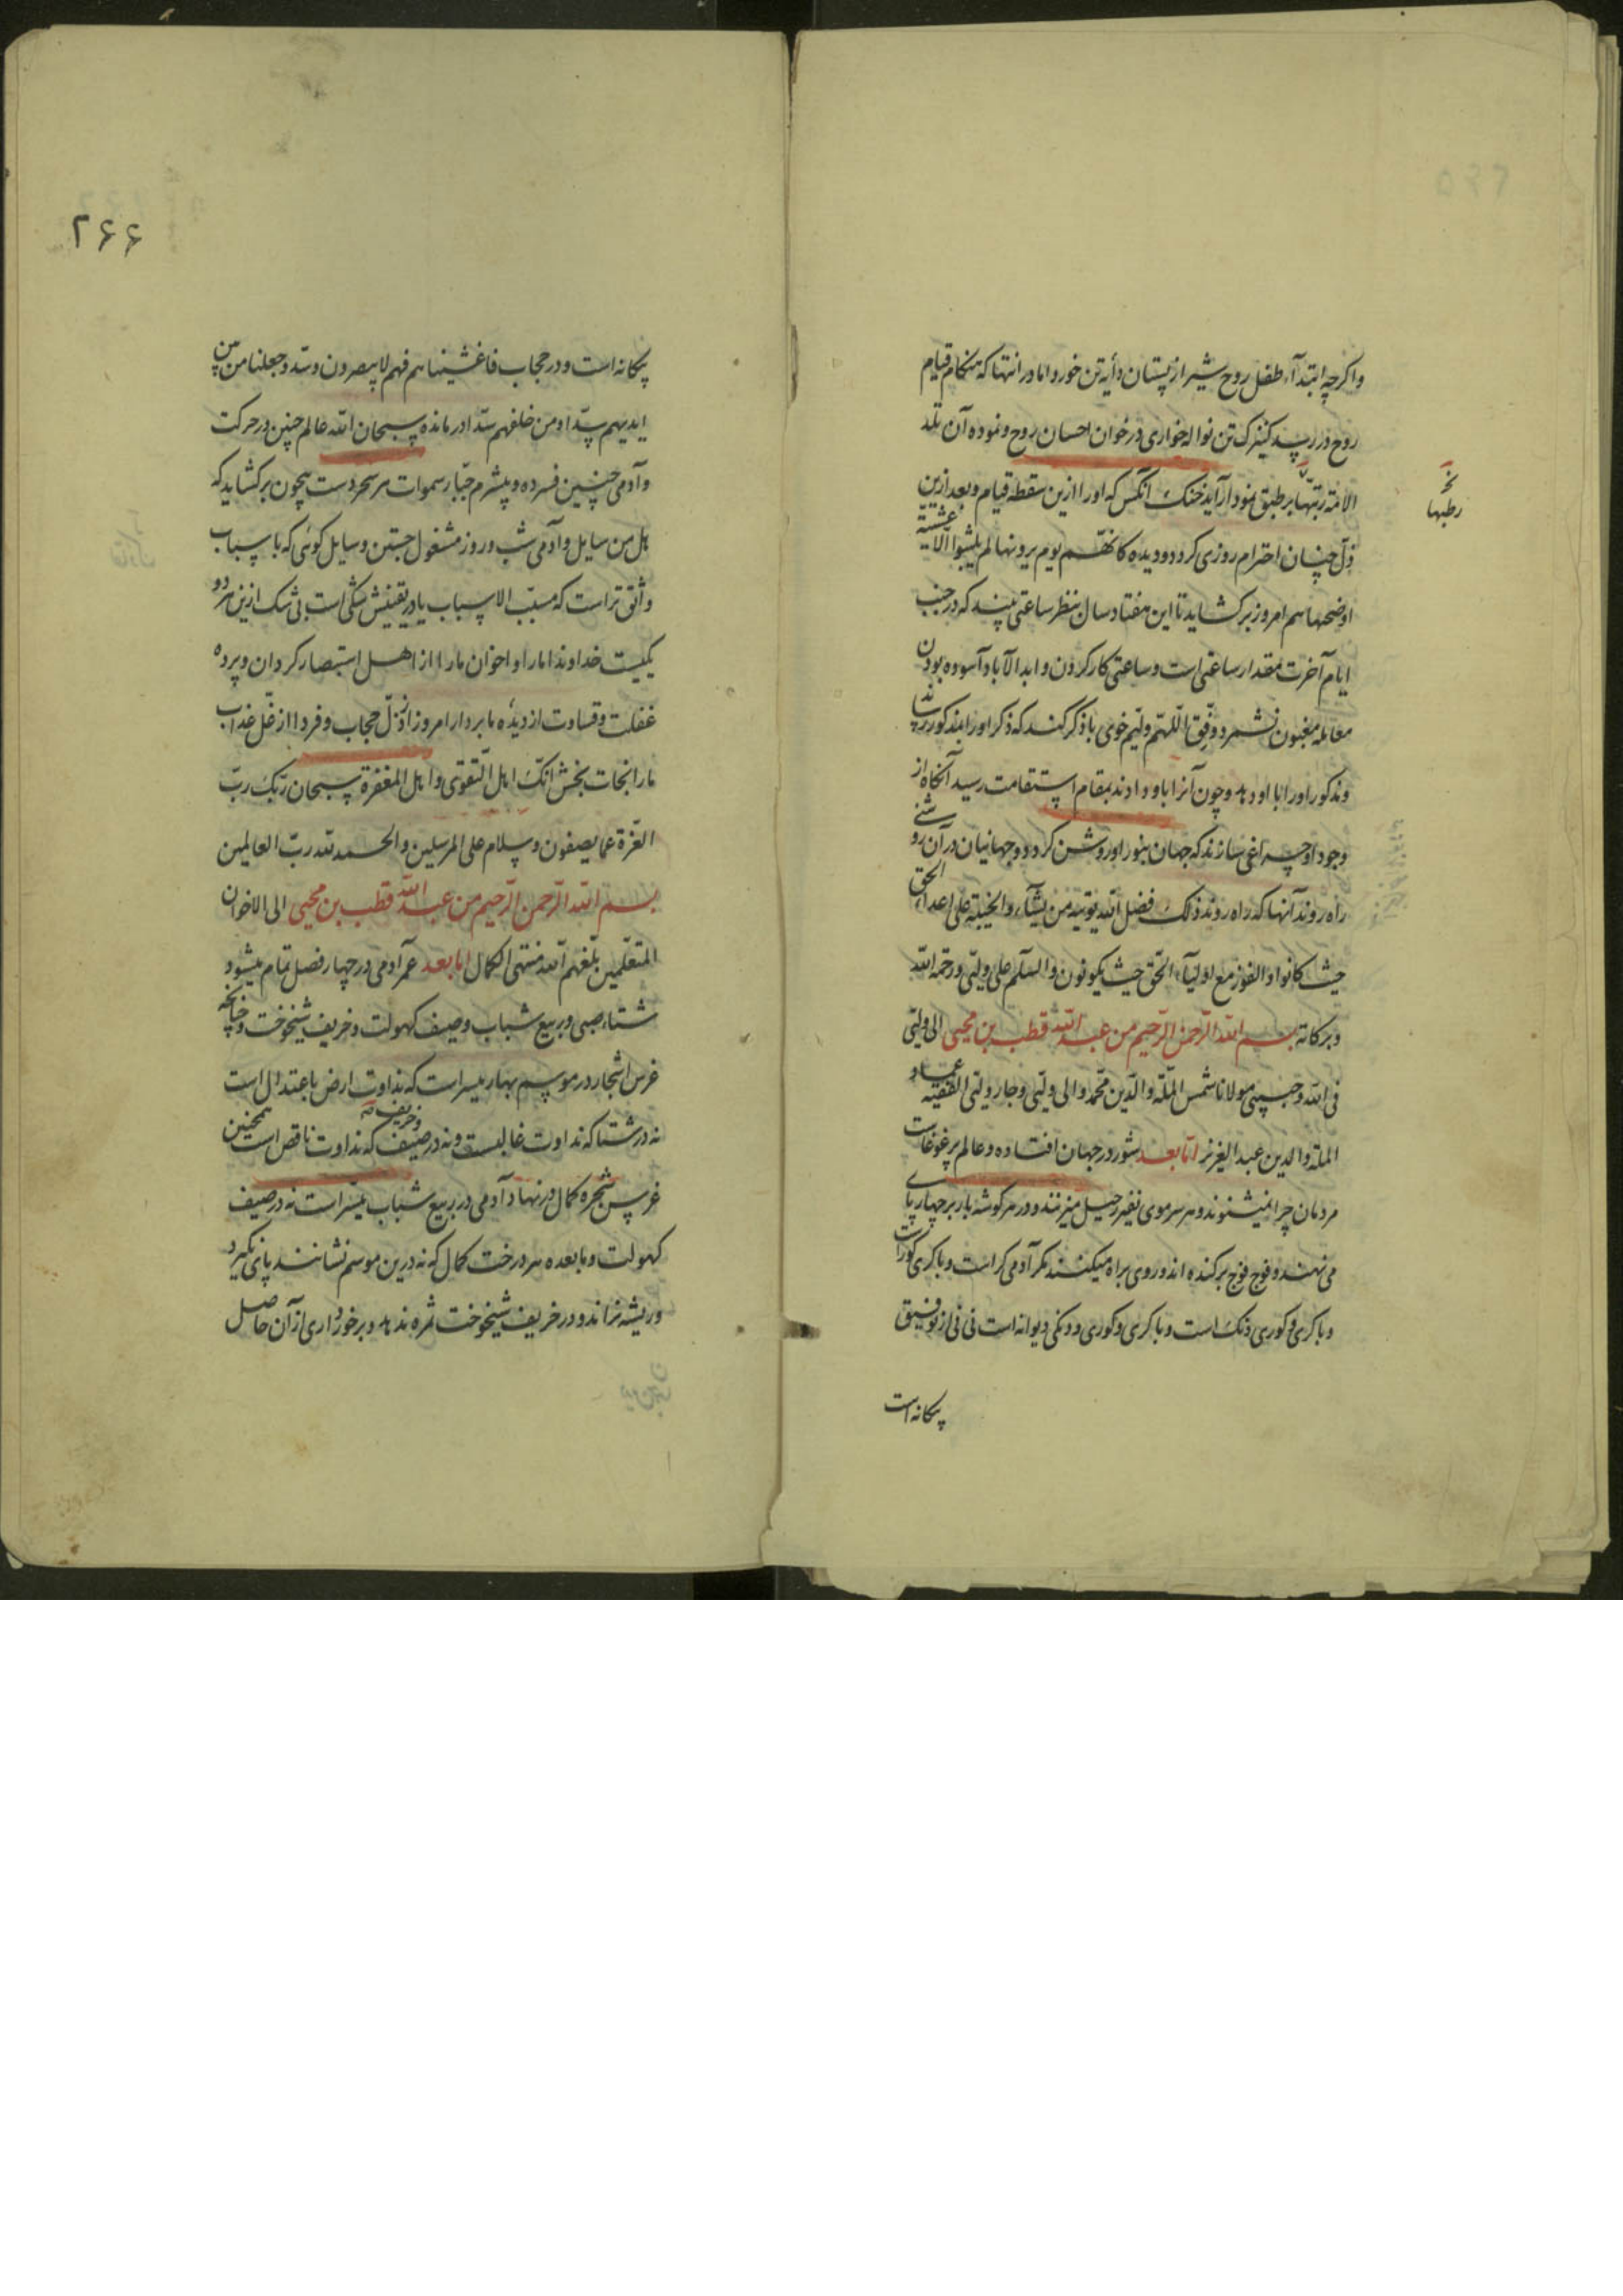 واکرچه ابتدآء طفل روح شیر از پستان دأیه تن خورد اما در انتها که هنکام قیام
روح در رسد کنیزک تن نواله خواری در خوان احسان روح و نموده آن تلد
الامة ربّتها بر طبق نمودار آید خنک آنکس که اورا ازین سقطه قیام و بعد ازین
ذلّ چنان احترام روزی کردد و دیده کانهّم یوم یرونها لم یلبثوا الّا عشیّة
نخـ
رطبها
اوضحها هم امروز برکشاید تا این هفتاد سال بنظر ساعتی بیند که در جنب
ایام آخرت مقدار ساعتی است و ساعتی کار کردن و ابد الآباد آسوده بودن
معامله مغبون نشمرد وفّق اللّهمّ ولیّم خوی با ذکر کند که ذکر اورا بمذکور رساند
ومذکور اورا با او دهد و چون آنرا باو دادند بمقام استقامت رسید آنکاه از
وجود او چراغی سازند که جهان بنور او روشن کردد و جهانیان در آن روشنی
راه روند آنها که راه روند ذلک فضل الله یؤتیه من یشآء والخیبة علی اعداء الحق
حیث کانوا والفوز مع اولیآء الحق حیث یکونون والسلام علی ولیّی ورحمة الله
وبرکاته بسم الله الرّحمن الرّحیم من عبد الله قطب بن محیی الی ولیّی
فی الله وحبیبی مولانا شمس الملّة والدّین محمّد والی ولیّی وجار ولیّی الفقیه عماد
الملة والدین عبد العزیز امّا بعد شور در جهان افتاده و عالم پر غوغاست
مردمان چرا نمیشنوند و هر سر موی نفیر رحیل میزنند و در هر کوشه بار بر چهارپای
می نهند و فوج فوج برکنده اند و روی براه میکنند مکر آدمی کر است و با کری کور است
و با کری و کوری دنک است و با کری و کوری و دنکی دیوانه است نی نی از توفیق
بیکانه است
۲۶۶
بیکانه است و در حجاب فاغشیناهم فهم لا یبصرون و سدّ وجعلنا من بین
ایدیهم سدّا و من خلفهم سدّا در مانده سبحان الله عالم چنین در حرکت
وآدمی چنین فسرده و بیشرم جبّار سموات هر سحر دست بیچون برکشاید که
هل من سایل و آدمی شب و روز مشغول جستن وسایل کوئی که با سباب
واثق تر است که مسبّب الاسباب یا در یقینش شکی است بی شک ازین هر دو
یکیست خداوندا مارا و اخوان مارا از اهل استبصار کردان و پرده
غفلت و قساوت از دیده ما بردار امروز از ذلّ حجاب و فردا از ذلّ عذاب
مارا نجات بخش انّک اهل التّقوی واهل المغفرة سبحان ربّک ربّ
العزّة عما یصفون وسلام علی المرسلین والحمد لله ربّ العالمین
بسم الله الرّحمن الرّحیم من عبد الله قطب بن محیی الی الاخوان
المتعلّمین بلّغهم الله منتهی الکمال اما بعد عمر آدمی در چهار فصل تمام میشود
شتاء صبی و ربیع شباب و صیف کهولت و خریف شیخوخت و چنانچه
غرس اشجار در موسم بهار میسر است که نداوت ارض باعتدال است
نه در شتا که نداوت غالبست و نه در صیف و خریف که نداوت ناقص است همچنین
غرس شجره کمال در نهاد آدمی در ربیع شباب میسّر است نه در صیف
کهولت و ما بعده هر درخت کمال که نه درین موسم نشانند پای نکیرد
وریشه نراند و در خریف شیخوخت ثمره ندهد و برخورداری از آن حاصل